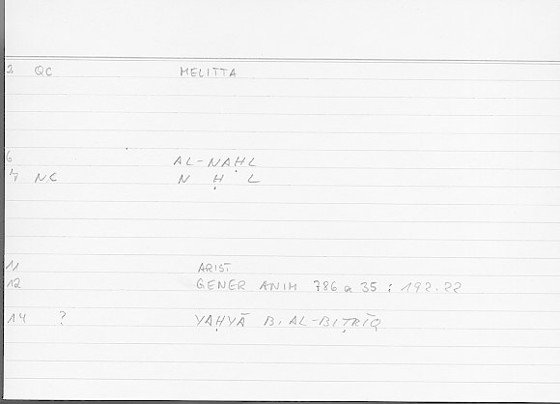 2 QC MELITTA
6 AL-NAḤL
7 NC N Ḥ L
11 ARIST
12 GENER ANIM 786 a 35 : 192.22
14 ? YAḤYĀ B. AL-BIṬRĪQ